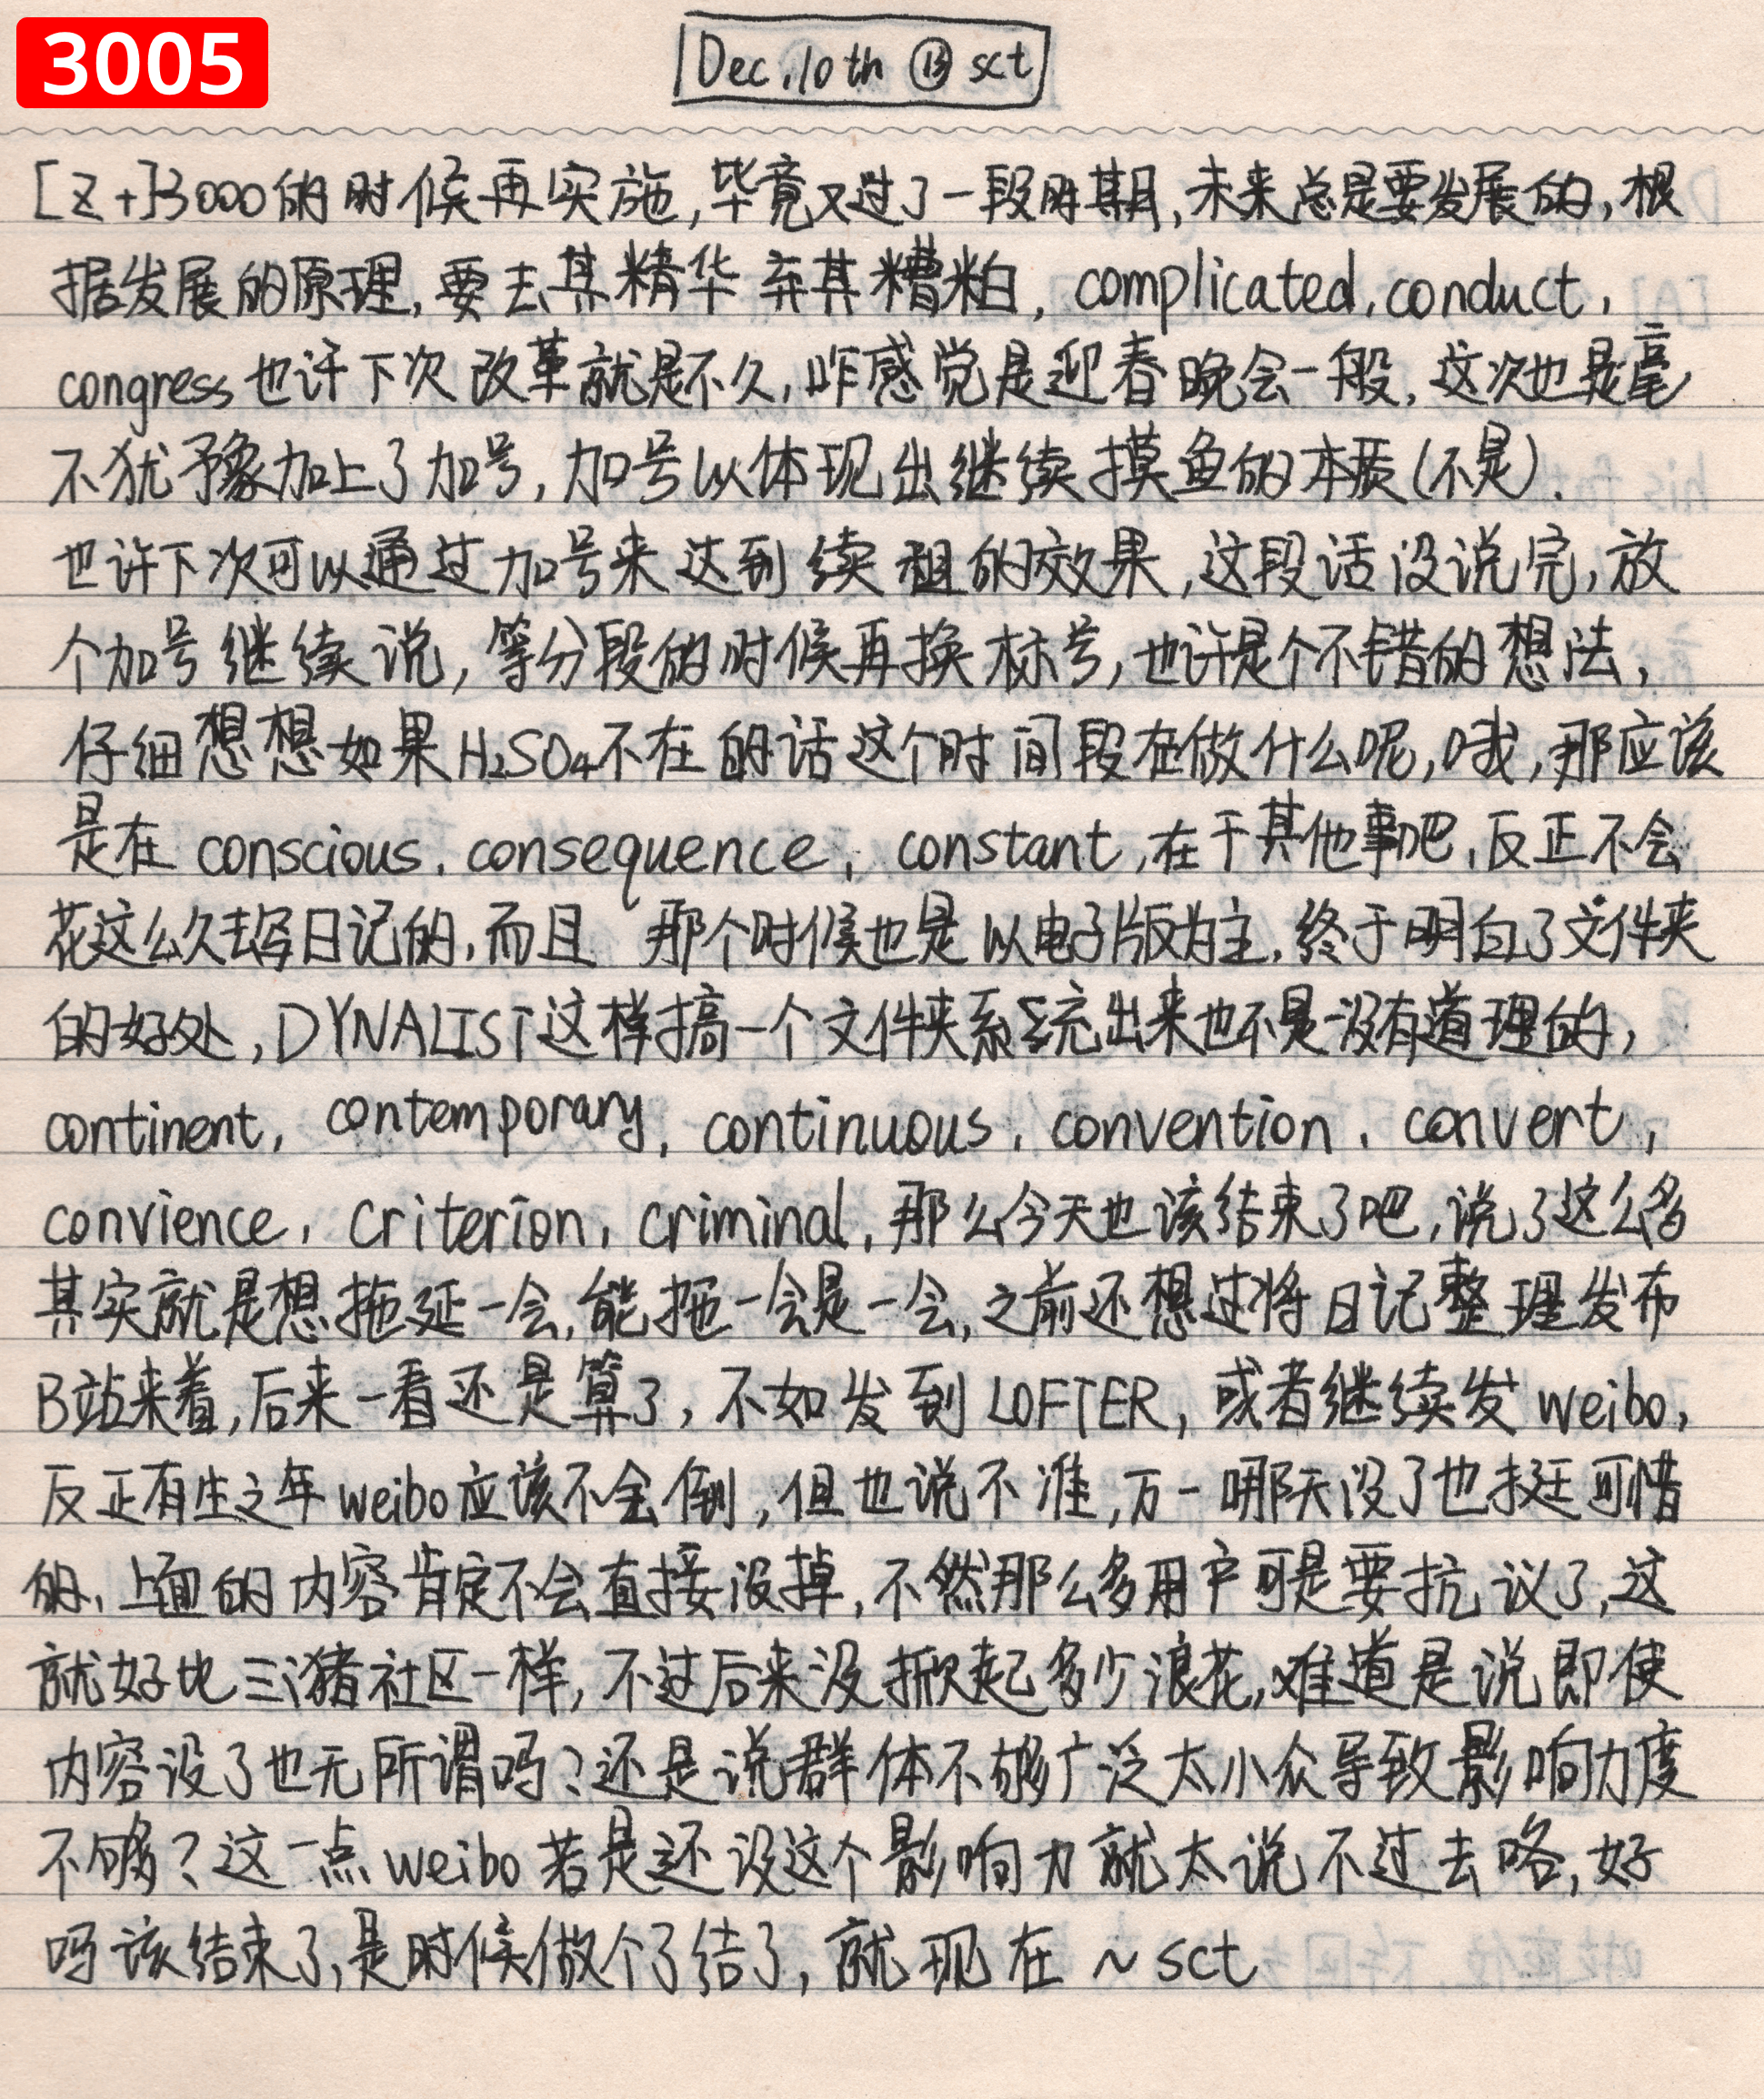 3005
Dec.10th ⑬ sct
[Z+]3000的时候再实施,毕竟又过了一段时期,未来总是要发展的,根
据发展的原理,要去其精华弃其糟粕,complicated,conduct,
congress也许下次改革就是不久,咋感觉是迎春晚会一般,这次也是毫
不犹予豫加上了加号,加号以体现出继续摸鱼的本质(不是).
也许下次可以通过加号来达到续租的效果,这段话没说完,放
个加号继续说,等分段的时候再换标号,也许是个不错的想法,
仔细想想如果H₂SO₄不在的话这个时间段在做什么呢,哦,那应该
是在conscious,consequence,constant,在干其他事吧,反正不会
花这么久去写日记的,而且那个时候也是以电子版为主,终于明白了文件夹
的好处,DYNALIST这样搞一个文件夹系统出来也不是没有道理的,
continent,contemporary,continuous,convention,convert,
convience,criterion,criminal,那么今天也该结束了吧,说了这么多
其实就是想拖延一会,能拖一会是一会,之前还想过将日记整理发布
B站来着,后来一看还是算了,不如发到LOFTER,或者继续发weibo,
反正有生之年weibo应该不会倒,但也说不准,万一哪天没了也挺可惜
的,上面的内容肯定不会直接没掉,不然那么多用户可是要抗议了,这
就好比三猪社区一样,不过后来没掀起多少浪花,难道是说即使
内容没了也无所谓吗?还是说群体不够广泛太小众导致影响力度
不够?这一点weibo若是还没这个影响力就太说不过去咯,好
吗该结束了,是时候做个了结了,就现在~sct